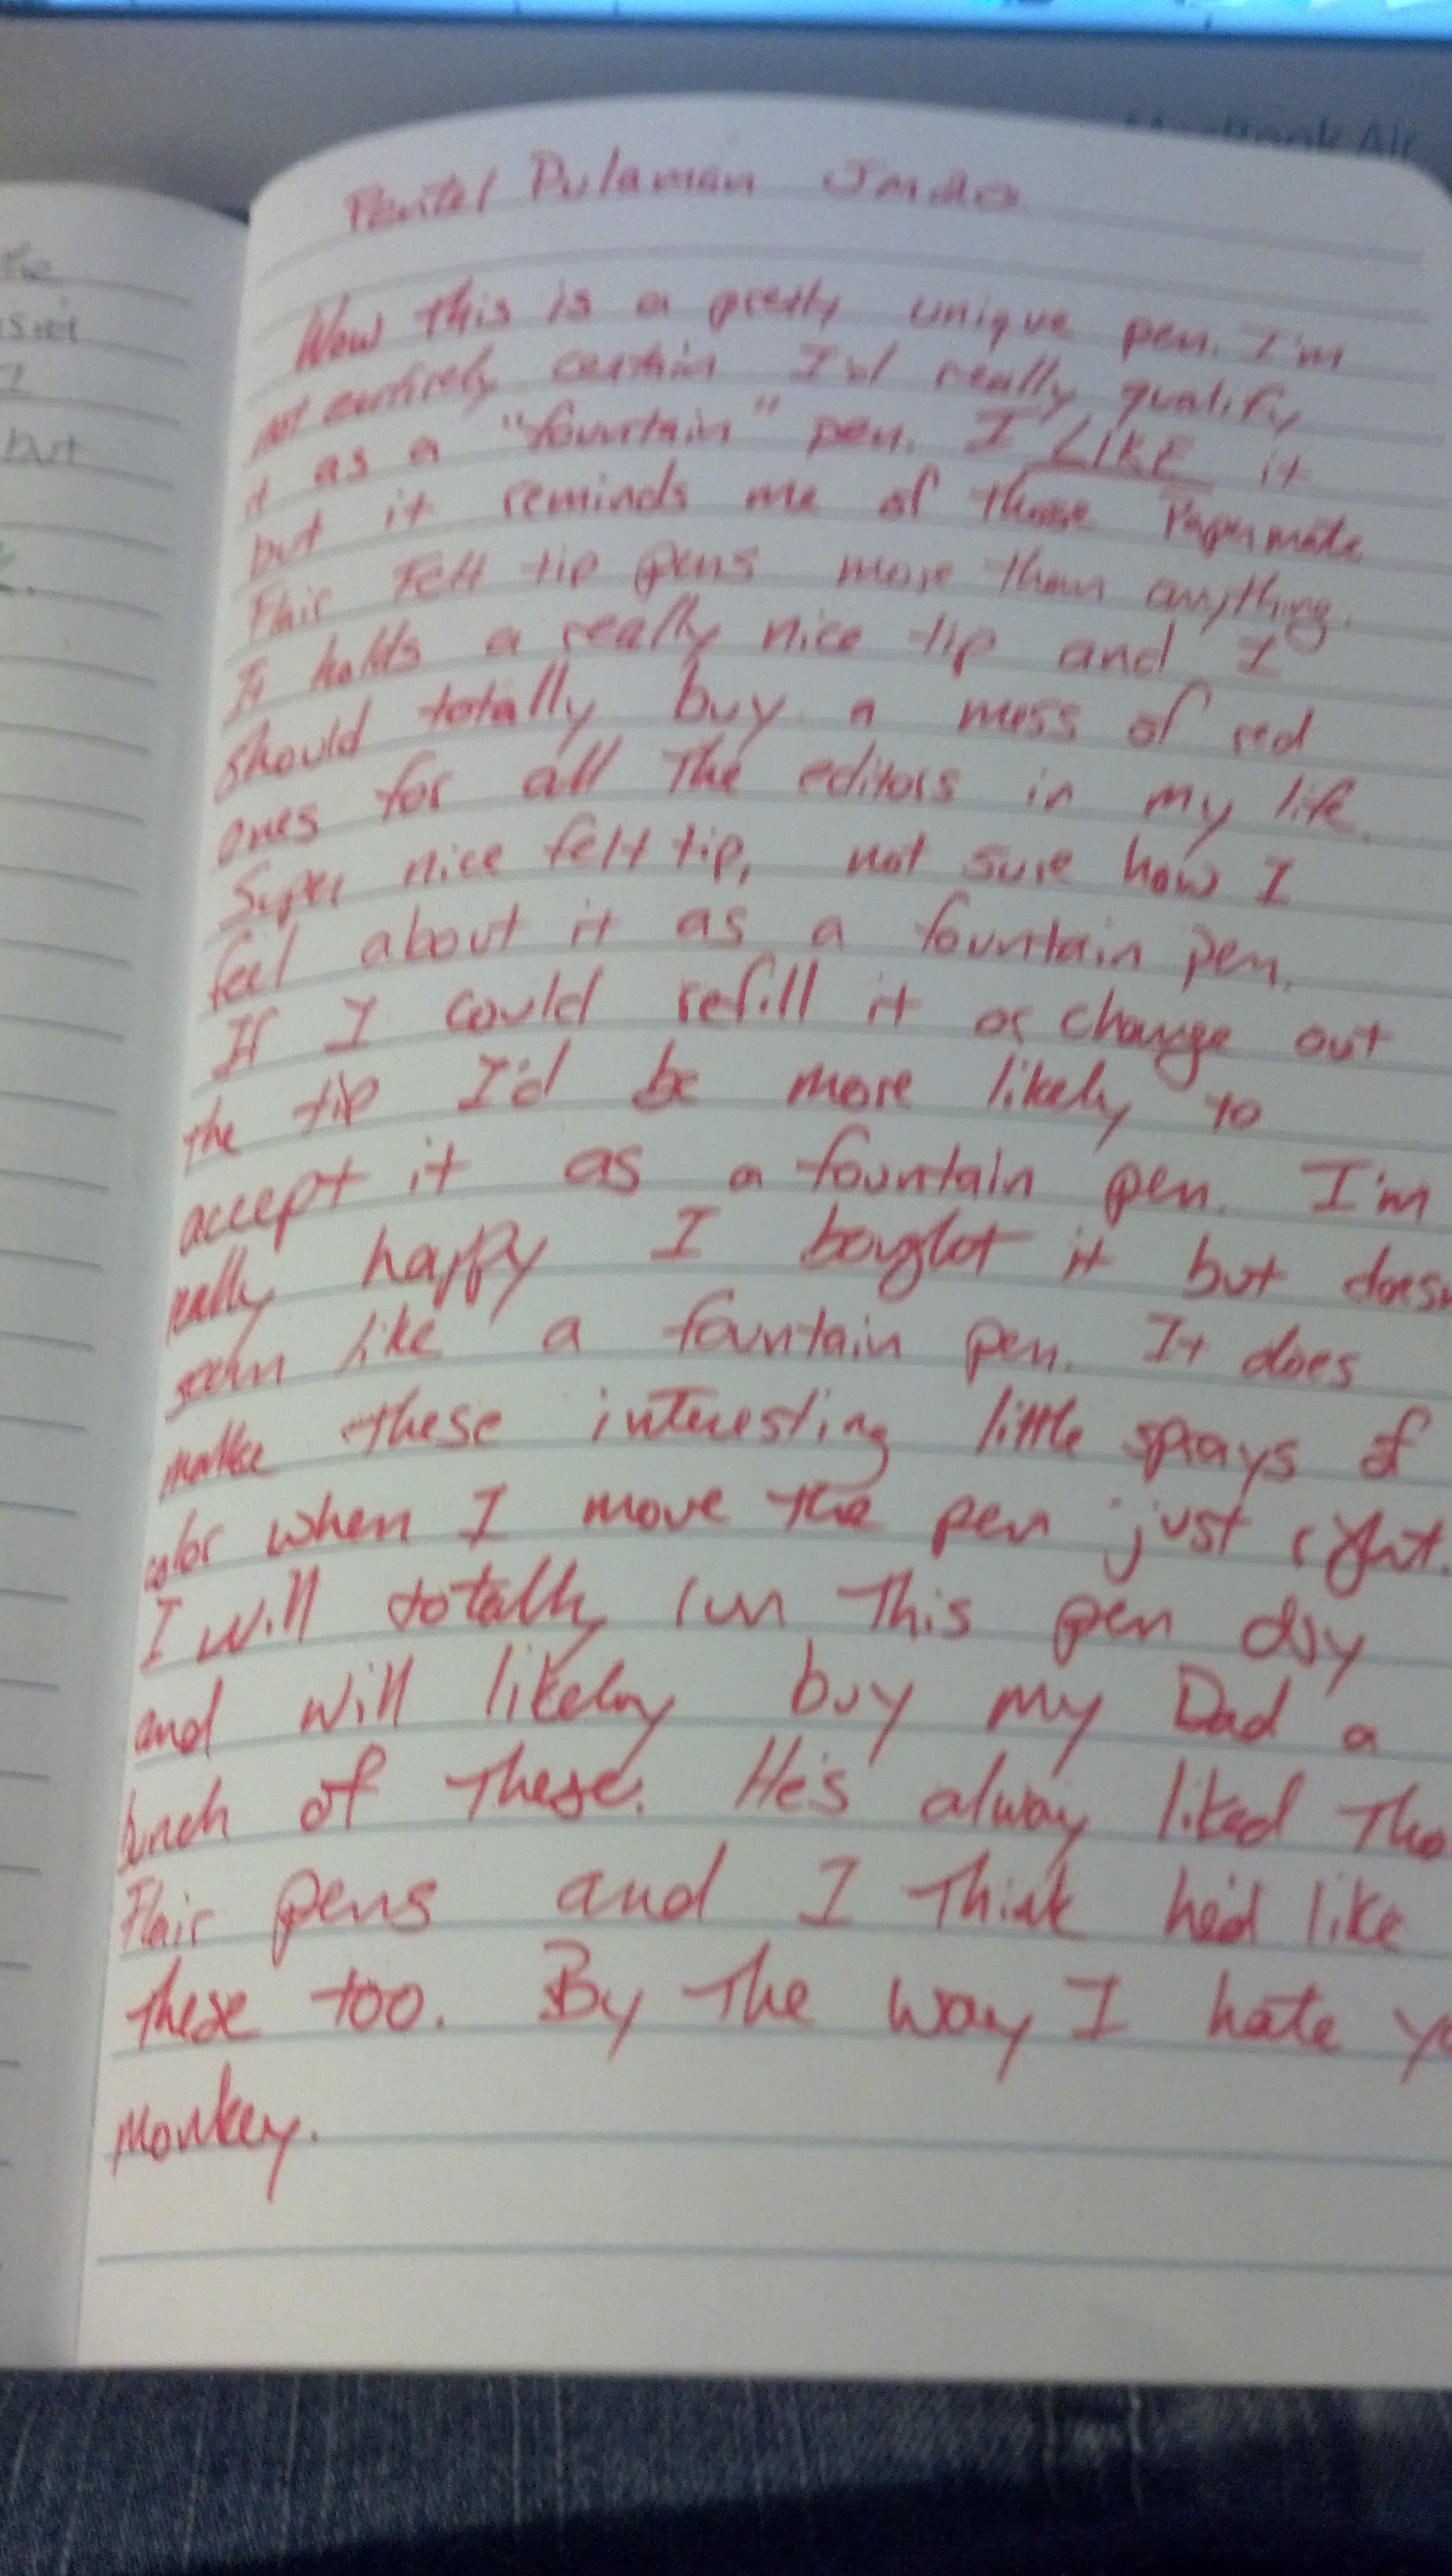 MacBook Air
the
isn't
I
but
Pentel Pulaman JM20
Now this is a pretty unique pen. I'm
not entirely certain I'd really qualify
it as a "fountain" pen. I LIKE it
but it reminds me of those Papermate
Flair Felt tip pens more than anything.
It holds a really nice tip and I
should totally buy a mess of red
ones for all the editors in my life.
Super nice felt tip, not sure how I
feel about it as a fountain pen.
If I could refill it or change out
the tip I'd be more likely to
accept it as a fountain pen. I'm
really happy I bought it but doesn
seem like a fountain pen. It does
make these interesting little sprays of
color when I move the pen just right.
I will totally run this pen dry
and will likely buy my Dad a
bunch of these. He's alway liked tho
Flair pens and I think he'd like
these too. By the way I hate yo
Monkey.